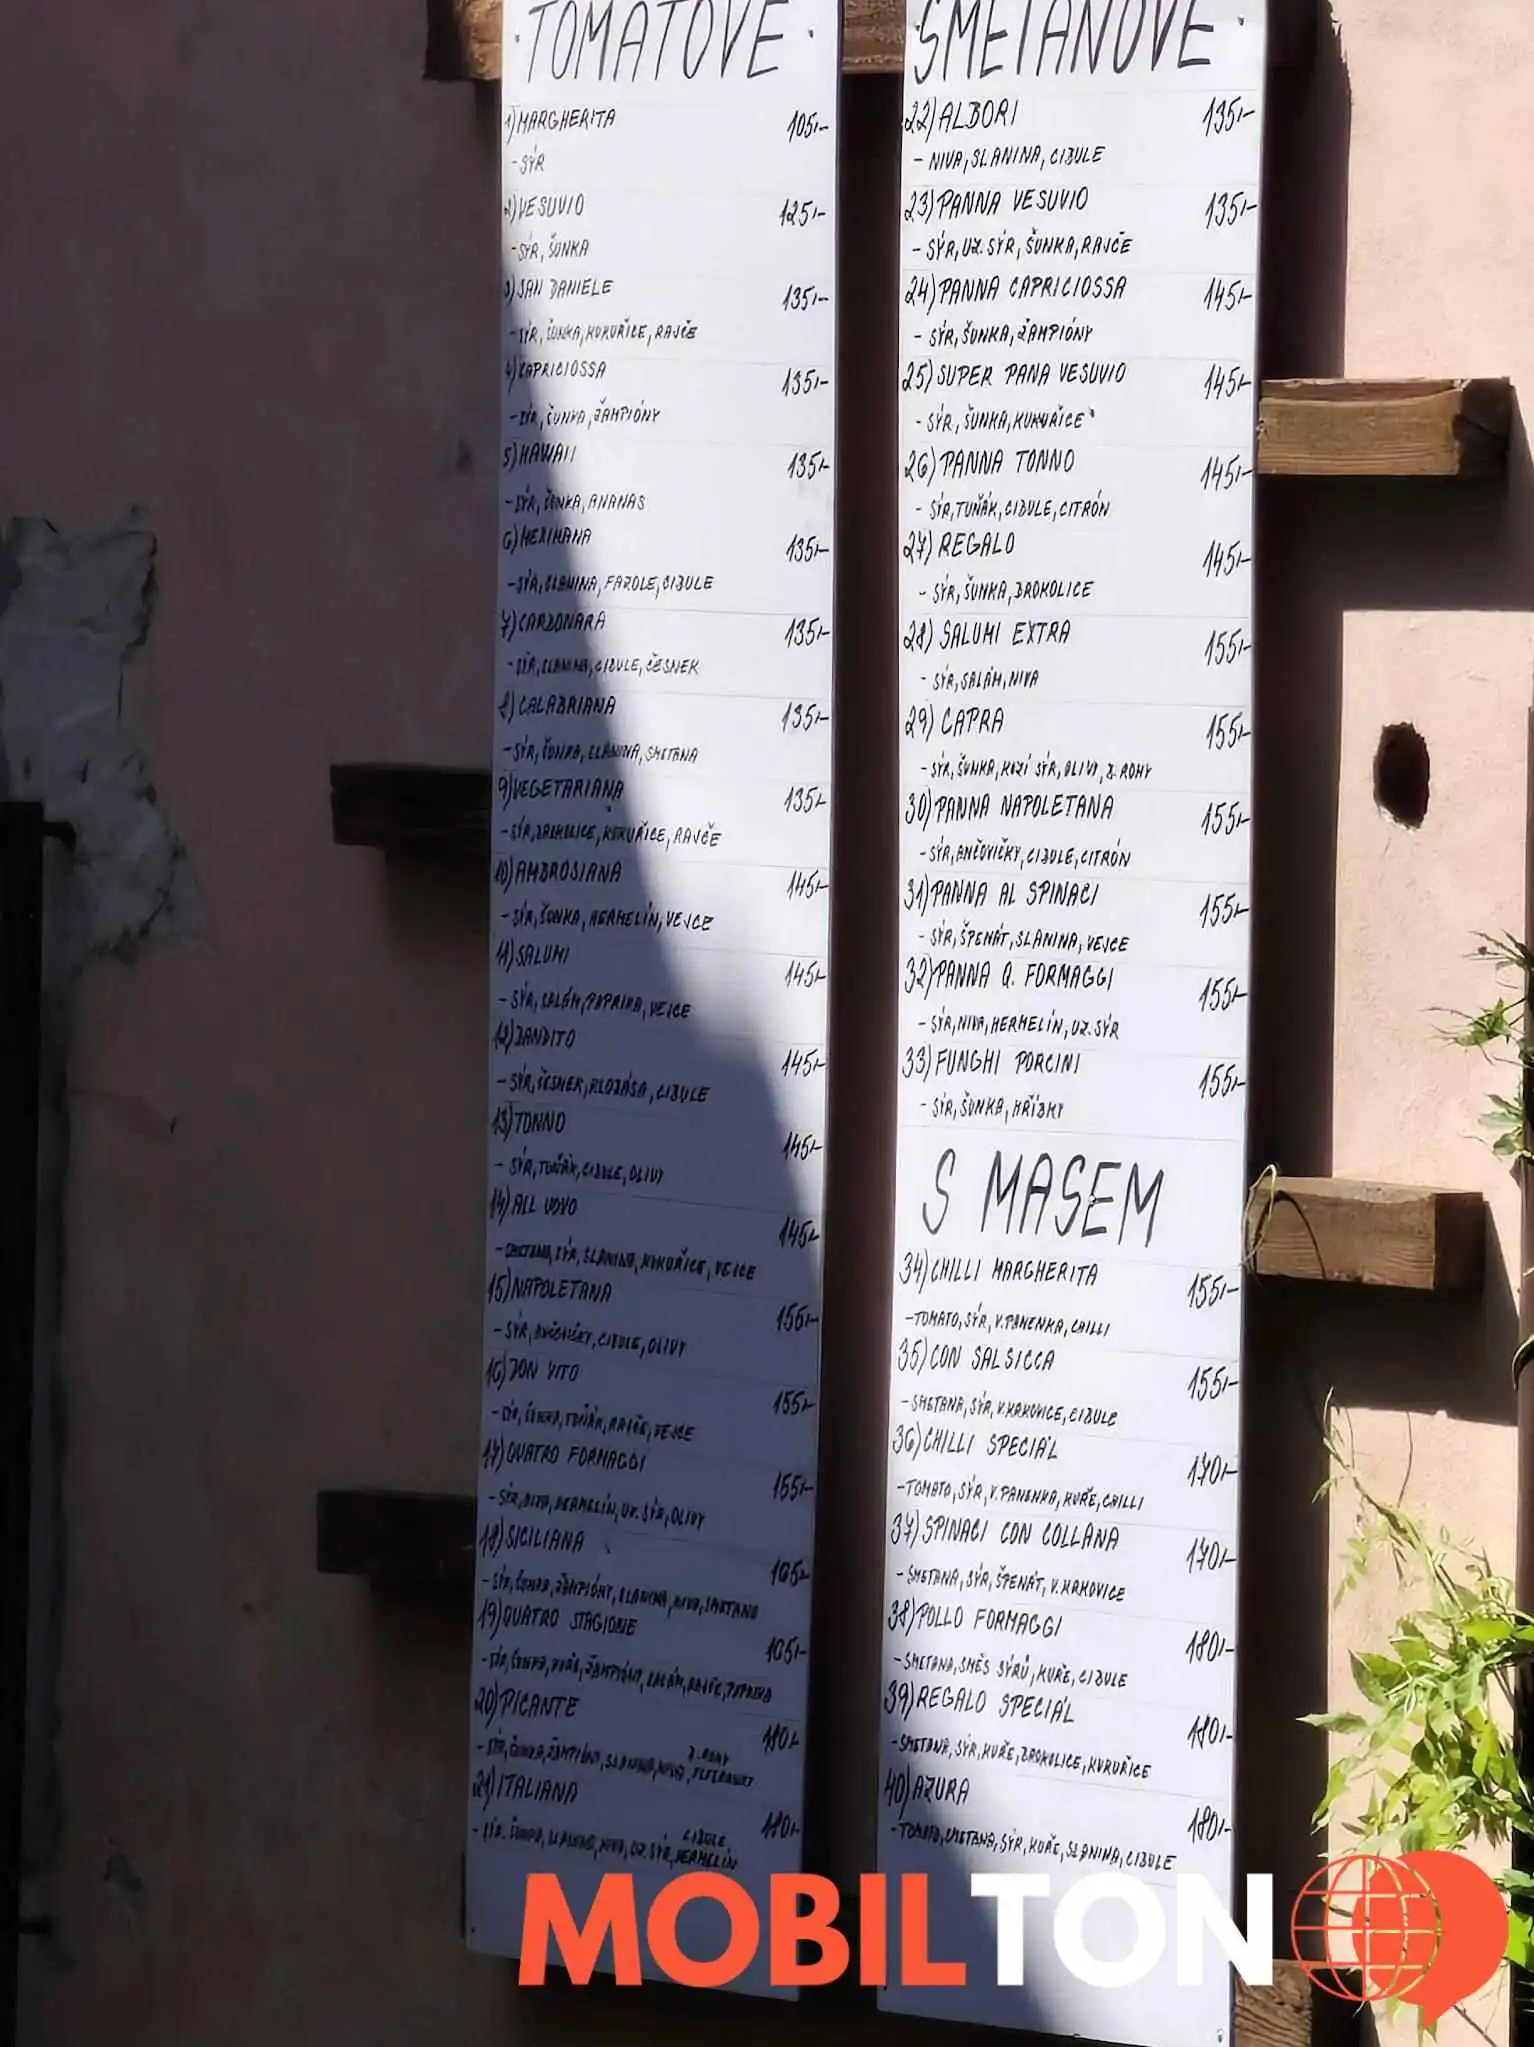 · TOMATOVÉ ·
1) MARGHERITA 105,-
- SÝR
2) VESUVIO 125,-
- SÝR, ŠUNKA
3) SAN DANIELE 135,-
- SÝR, ŠUNKA, KUKUŘICE, RAJČE
4) CAPRICIOSSA 135,-
- SÝR, ŠUNKA, ŽAMPIÓNY
5) HAWAII 135,-
- SÝR, ŠUNKA, ANANAS
6) MEXIKANA 135,-
- SÝR, SLANINA, FAZOLE, CIBULE
7) CARBONARA 135,-
- SÝR, SLANINA, CIBULE, ČESNEK
8) CALABRIANA 135,-
- SÝR, ŠUNKA, SLANINA, SMETANA
9) VEGETARIANA 135,-
- SÝR, BROKOLICE, KUKUŘICE, RAJČE
10) AMBROSIANA 145,-
- SÝR, ŠUNKA, HERMELÍN, VEJCE
11) SALUMI 145,-
- SÝR, SALÁM, PAPRIKA, VEJCE
12) BANDITO 145,-
- SÝR, ČESNEK, KLOBÁSA, CIBULE
13) TONNO 145,-
- SÝR, TUŇÁK, CIBULE, OLIVY
14) ALL UOVO 145,-
- SMETANA, SÝR, SLANINA, KUKUŘICE, VEJCE
15) NAPOLETANA 155,-
- SÝR, ANČOVIČKY, CIBULE, OLIVY
16) DON VITO 155,-
- SÝR, ŠUNKA, TUŇÁK, RAJČE, VEJCE
17) QUATRO FORMAGGI 155,-
- SÝR, NIVA, HERMELÍN, UZ. SÝR, OLIVY
18) SICILIANA 165,-
- SÝR, ŠUNKA, ŽAMPIÓNY, SLANINA, NIVA, SMETANA
19) QUATRO STAGIONE 165,-
- SÝR, ŠUNKA, KUŘE, ŽAMPIÓNY, SALÁM, RAJČE, PAPRIKA
20) PICANTE 180,-
- SÝR, ŠUNKA, ŽAMPIÓNY, SLANINA, NIVA, B. ROHY FEFERONKY
21) ITALIANA 180,-
- SÝR, ŠUNKA, SLANINA, NIVA, UZ. SÝR, CIBULE HERMELÍN
· SMETANOVÉ ·
22) ALBORI 135,-
- NIVA, SLANINA, CIBULE
23) PANNA VESUVIO 135,-
- SÝR, UZ. SÝR, ŠUNKA, RAJČE
24) PANNA CAPRICIOSSA 145,-
- SÝR, ŠUNKA, ŽAMPIÓNY
25) SUPER PANA VESUVIO 145,-
- SÝR, ŠUNKA, KUKUŘICE
26) PANNA TONNO 145,-
- SÝR, TUŇÁK, CIBULE, CITRÓN
27) REGALO 145,-
- SÝR, ŠUNKA, BROKOLICE
28) SALUMI EXTRA 155,-
- SÝR, SALÁM, NIVA
29) CAPRA 155,-
- SÝR, ŠUNKA, KOZÍ SÝR, OLIVY, B. ROHY
30) PANNA NAPOLETANA 155,-
- SÝR, ANČOVIČKY, CIBULE, CITRÓN
31) PANNA AL SPINACI 155,-
- SÝR, ŠPENÁT, SLANINA, VEJCE
32) PANNA Q. FORMAGGI 155,-
- SÝR, NIVA, HERMELÍN, UZ. SÝR
33) FUNGHI PORCINI 155,-
- SÝR, ŠUNKA, HŘÍBKY
S MASEM
34) CHILLI MARGHERITA 155,-
- TOMATO, SÝR, V. PANENKA, CHILLI
35) CON SALSICCA 155,-
- SMETANA, SÝR, V. KRKOVICE, CIBULE
36) CHILLI SPECIÁL 170,-
- TOMATO, SÝR, V. PANENKA, KUŘE, CHILLI
37) SPINACI CON COLLANA 170,-
- SMETANA, SÝR, ŠPENÁT, V. KRKOVICE
38) POLLO FORMAGGI 180,-
- SMETANA, SMĚS SÝRŮ, KUŘE, CIBULE
39) REGALO SPECIÁL 180,-
- SMETANA, SÝR, KUŘE, BROKOLICE, KUKUŘICE
40) AZURA 180,-
- TOMATO, SMETANA, SÝR, KUŘE, SLANINA, CIBULE
MOBILTON